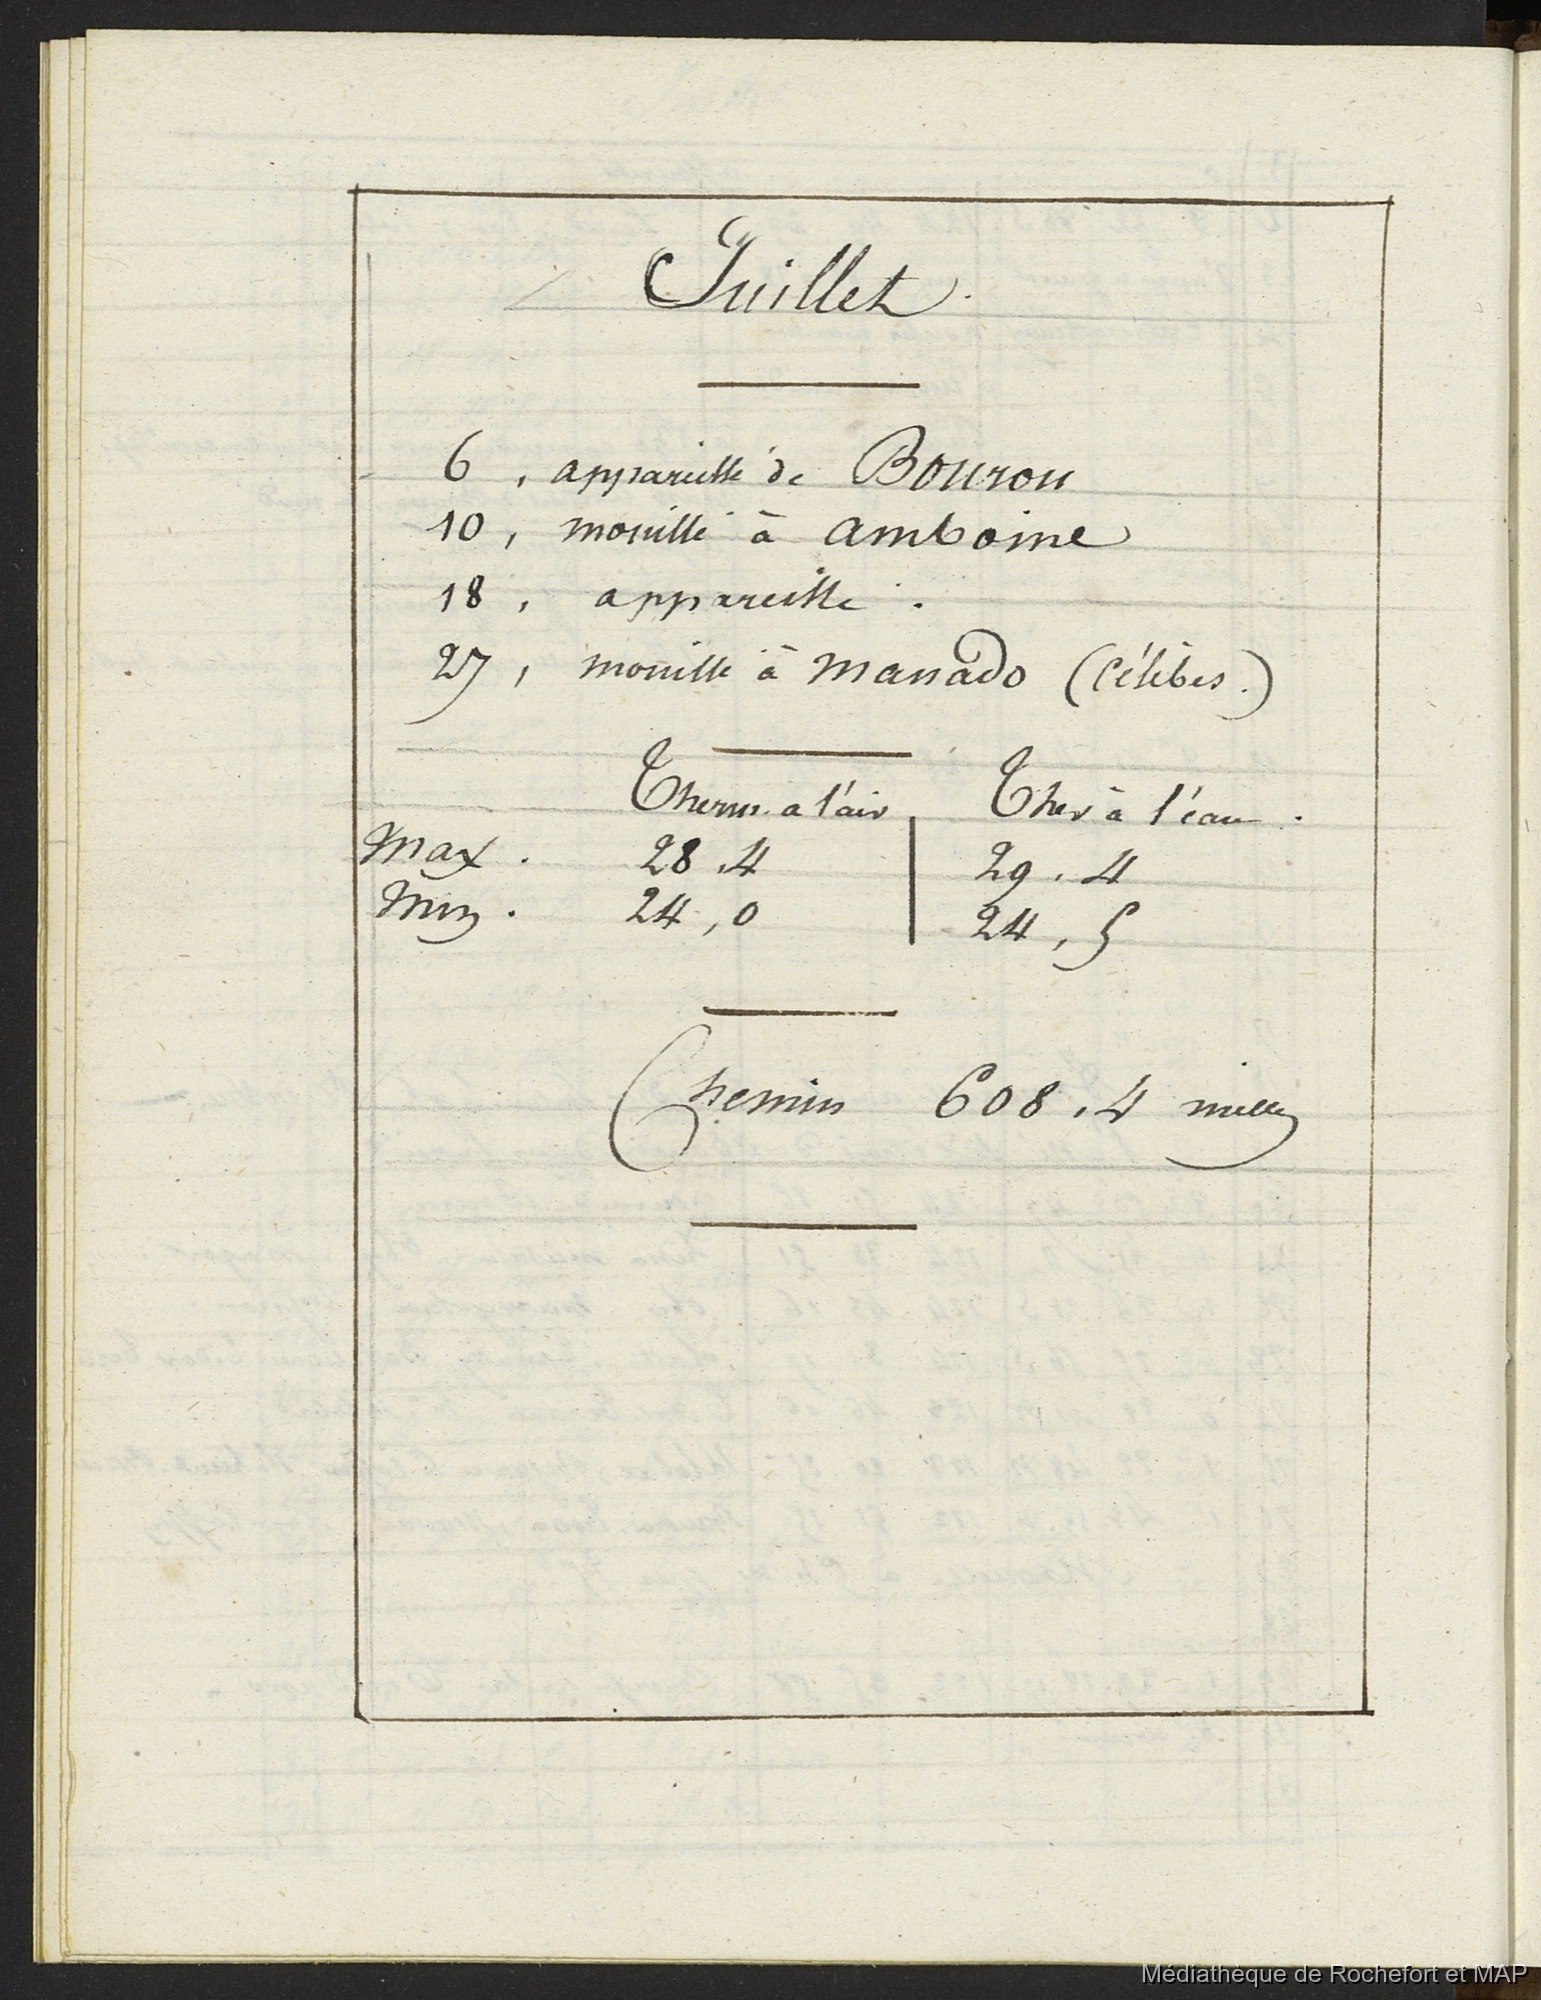 Juillet.
6, appareillé de Bourou
10, mouillé à amboine
18, appareillé.
27, mouillé à Manado (Célèbes.)
Therm. a l'air Ther à l'eau.
Max. 28.4 29.4
Min. 24,0 24,5
Chemin 608.4 milles
Médiathèque de Rochefort et MAP